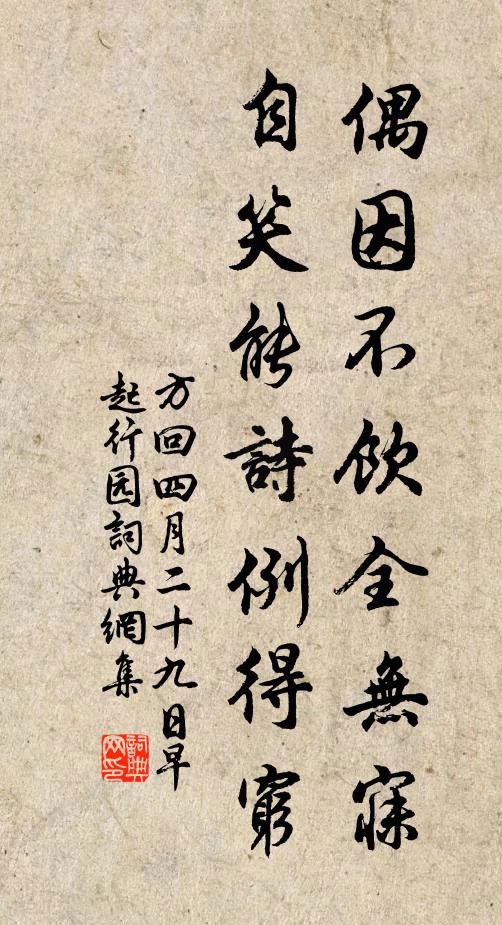 偶因不飲全無寐
自笑能詩例得窮
方回四月二十九日早
起行园詞典網集
詞典
网印